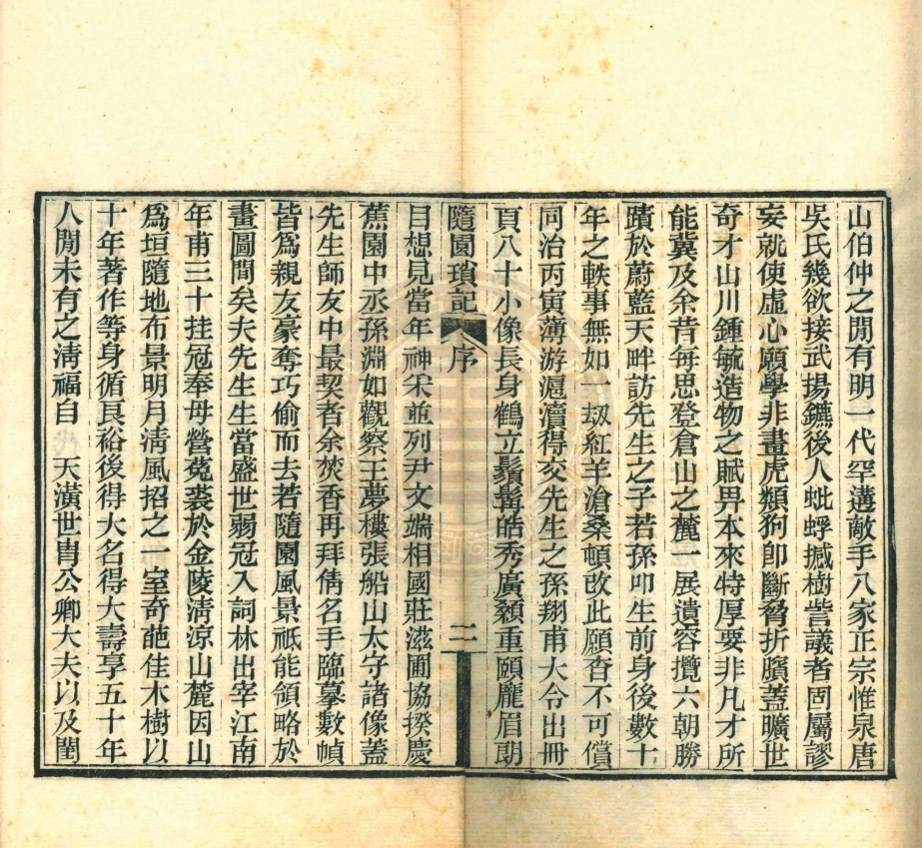 山伯仲之閒有明一代罕遘敵手八家正宗惟泉唐
吳氏幾欲接武揚鑣後人蚍蜉撼樹訾議者固屬謬
妄就使虛心願學非畫虎類狗卽斷脅折臏蓋曠世
奇才山川鍾毓造物之賦畀本來特厚要非凡才所
能冀及余昔每思登倉山之麓一展遺容攬六朝勝
蹟於蔚藍天畔訪先生之子若孫叩生前身後數十
年之軼事無如一刼紅羊滄桑頓改此願杳不可償
同治丙寅薄游滬瀆得交先生之孫翔甫大令出冊
頁八十小像長身鶴立鬚髯皓秀廣顙重頤龐眉朗
隨園瑣記 序 二
目想見當年神宋並列尹文端相國莊滋圃協揆慶
蕉園中丞孫淵如觀察王夢樓張船山太守諸像蓋
先生師友中最契者余焚香再拜倩名手臨摹數幀
皆爲親友豪奪巧偷而去若隨園風景祗能領略於
畫圖間矣夫先生生當盛世弱冠入詞林出宰江南
年甫三十挂冠奉母營菟裘於金陵淸涼山麓因山
爲垣隨地布景明月淸風招之一室奇葩佳木樹以
十年著作等身循良裕後得大名得大壽享五十年
人閒未有之淸福自 天潢世胄公卿大夫以及閨